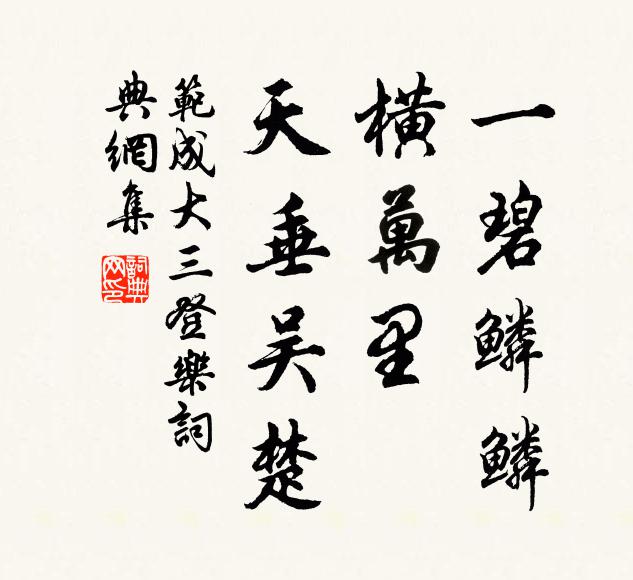 一碧鱗鱗
橫萬里
天垂吴楚
範成大三登樂詞
典網集
詞典網印